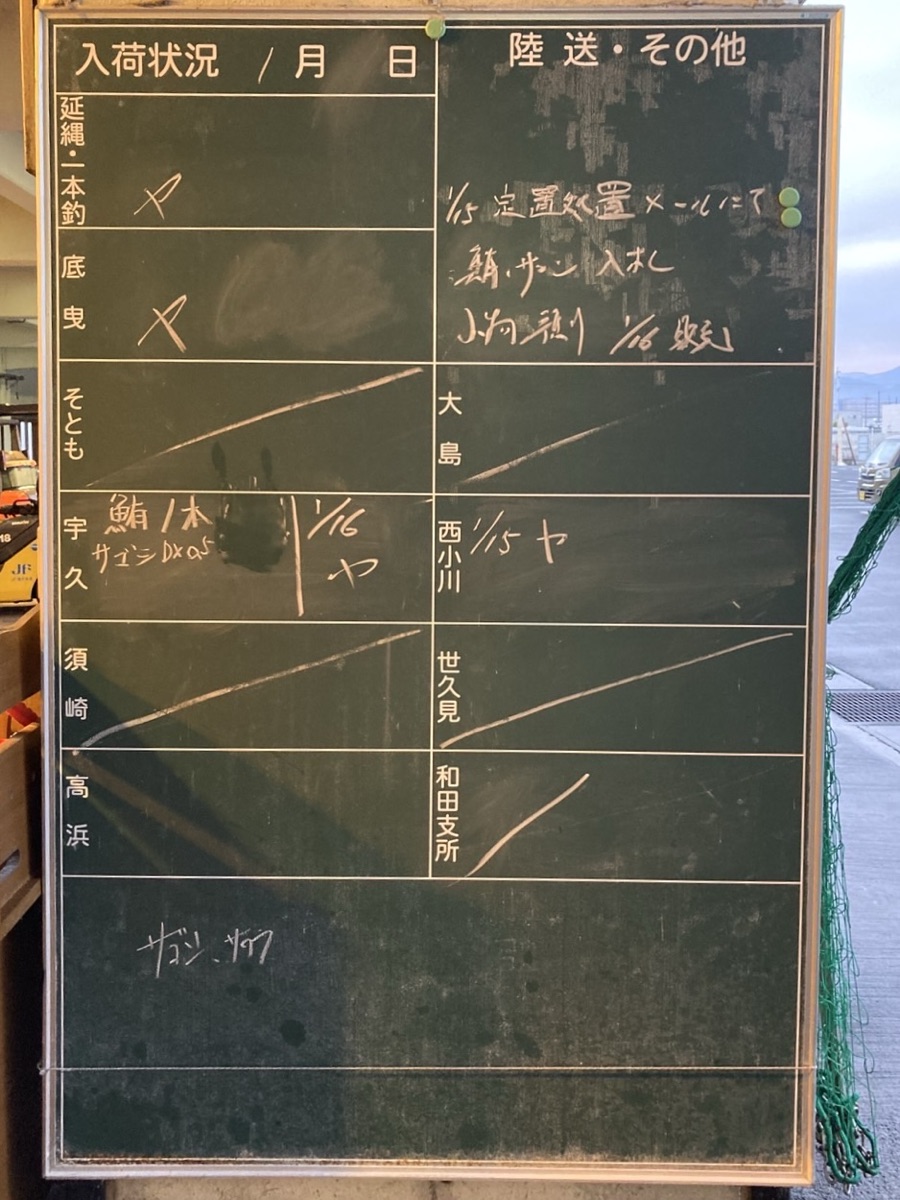 入荷状況 /月 日
延縄・一本釣
ヤ
底曳
ヤ
そとも
宇久
鮪1本
サゴシDX0.5
1/16
ヤ
須崎
高浜
陸送・その他
1/15 定置処置メールにて
鮪、サゴシ 入札
1/16 販売
大島
西小川
1/15 ヤ
世久見
和田支所
サゴシ、サワラ